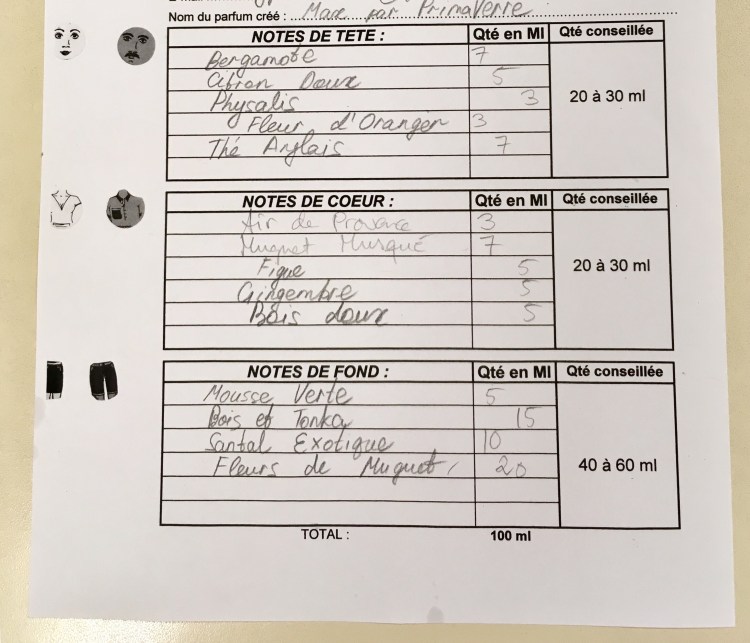 Nom du parfum créé : Marc par PrimaVerre
NOTES DE TETE : Qté en Ml Qté conseillée
Bergamote 7
Citron Doux 5
Physalis 3 20 à 30 ml
Fleur d'Oranger 3
Thé Anglais 7
NOTES DE COEUR : Qté en Ml Qté conseillée
Air de Provence 3
Muguet Musqué 7
Figue 5 20 à 30 ml
Gingembre 5
Bois doux 5
NOTES DE FOND : Qté en Ml Qté conseillée
Mousse Verte 5
Bois et Tonka 15
Santal Exotique 10
Fleurs de Muguet 20 40 à 60 ml
TOTAL : 100 ml